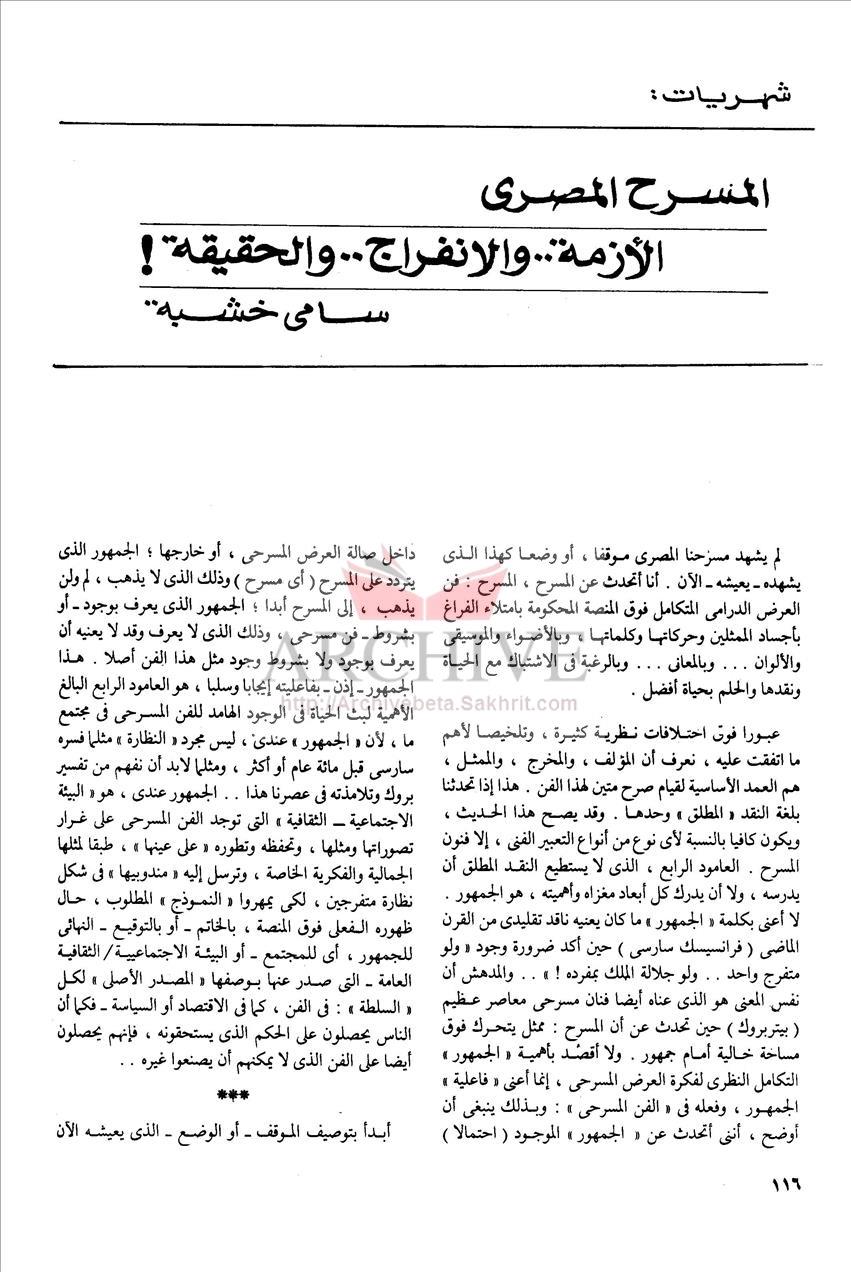 شهريات :
المسرح المصرى
الأزمة .. والانفراج .. والحقيقة !
سامى خشبة
لم يشهد مسرحنا المصرى موقفا ، أو وضعا كهذا الذى
يشهده ـ يعيشه ـ الآن . أنا أتحدث عن المسرح ، المسرح : فن
العرض الدرامى المتكامل فوق المنصة المحكومة بامتلاء الفراغ
بأجساد الممثلين وحركاتها وكلماتها ، وبالأضواء والموسيقى
والألوان ... وبالمعانى ... وبالرغبة فى الاشتباك مع الحياة
ونقدها والحلم بحياة أفضل .
عبورا فوق اختلافات نظرية كثيرة ، وتلخيصا لأهم
ما اتفقت عليه ، نعرف أن المؤلف ، والمخرج ، والممثل ،
هم العمد الأساسية لقيام صرح متين لهذا الفن . هذا إذا تحدثنا
بلغة النقد « المطلق » وحدها . وقد يصح هذا الحديث ،
ويكون كافيا بالنسبة لأى نوع من أنواع التعبير الفنى ، إلا فنون
المسرح . العامود الرابع ، الذى لا يستطيع النقد المطلق أن
يدرسه ، ولا أن يدرك كل أبعاد مغزاه وأهميته ، هو الجمهور .
لا أعنى بكلمة « الجمهور » ما كان يعنيه ناقد تقليدى من القرن
الماضى ( فرانسيسك سارسى ) حين أكد ضرورة وجود « ولو
متفرج واحد .. ولو جلالة الملك بمفرده ! » .. والمدهش أن
نفس المعنى هو الذى عناه أيضا فنان مسرحى معاصر عظيم
( بيتربروك ) حين تحدث عن أن المسرح : ممثل يتحرك فوق
مساحة خالية أمام جمهور . ولا أقصد بأهمية « الجمهور »
التكامل النظرى لفكرة العرض المسرحى ، إنما أعنى « فاعلية »
الجمهور ، وفعله فى « الفن المسرحى » : وبذلك ينبغى أن
أوضح ، أننى أتحدث عن « الجمهور » الموجود ( احتمالا )
داخل صالة العرض المسرحى ، أو خارجها ؛ الجمهور الذى
يتردد على المسرح ( أى مسرح ) وذلك الذى لا يذهب ، لم ولن
يذهب ، إلى المسرح أبدا ؛ الجمهور الذى يعرف بوجود ـ أو
بشروط ـ فن مسرحى ، وذلك الذى لا يعرف وقد لا يعنيه أن
يعرف بوجود ولا بشروط وجود مثل هذا الفن أصلا . هذا
الجمهور ـ إذن ـ بفاعليته إيجابا وسلبا ، هو العامود الرابع البالغ
الأهمية لبث الحياة فى الوجود الهامد للفن المسرحى فى مجتمع
ما ، لأن « الجمهور » عندى ، ليس مجرد « النظارة » مثلما فسره
سارسى قبل مائة عام أو أكثر ، ومثلما لابد أن نفهم من تفسير
بروك وتلامذته فى عصرنا هذا .. الجمهور عندى ، هو « البيئة
الاجتماعية ـ الثقافية » التى توجد الفن المسرحى على غرار
تصوراتها ومثلها ، وتحفظه وتطوره « على عينها » ، طبقا لمثلها
الجمالية والفكرية الخاصة ، وترسل إليه « مندوبيها » فى شكل
نظارة متفرجين ، لكى يمهروا « النموذج » المطلوب ، حال
ظهوره الفعلى فوق المنصة ، بالخاتم ـ أو بالتوقيع ـ النهائى
للجمهور ، أى للمجتمع ـ أو البيئة الاجتماعيية/ الثقافية
العامة ـ التى صدر عنها بوصفها « المصدر الأصلى » لكل
« السلطة » : فى الفن ، كما فى الاقتصاد أو السياسة ـ فكما أن
الناس يحصلون على الحكم الذى يستحقونه ، فإنهم يحصلون
أيضا على الفن الذى لا يمكنهم أن يصنعوا غيره ..
***
أبدأ بتوصيف الموقف ـ أو الوضع ـ الذى يعيشه الآن
١١٦
ARCHIVE
http://Archivebeta.Sakhrit.com